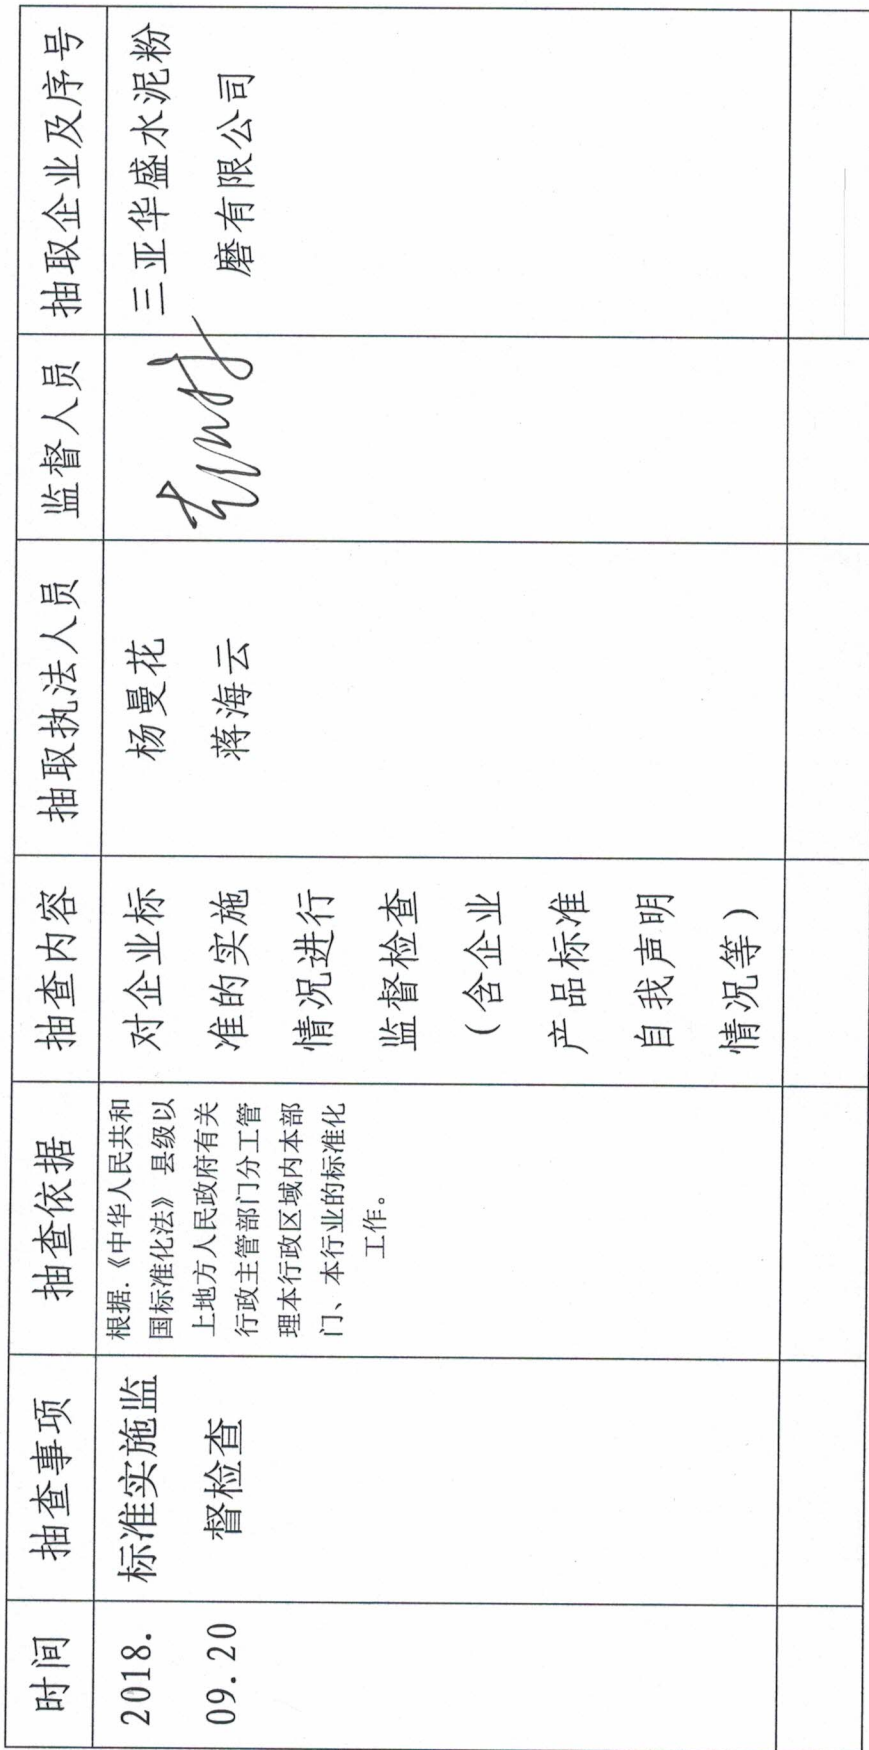 时间
抽查事项
抽查依据
抽查内容
抽取执法人员
监督人员
抽取企业及序号
2018.
09.20
标准实施监
督检查
根据.《中华人民共和
国标准化法》 县级以
上地方人民政府有关
行政主管部门分工管
理本行政区域内本部
门、本行业的标准化
工作。
对企业标
准的实施
情况进行
监督检查
(含企业
产品标准
自我声明
情况等)
杨曼花
蒋海云
三亚华盛水泥粉
磨有限公司